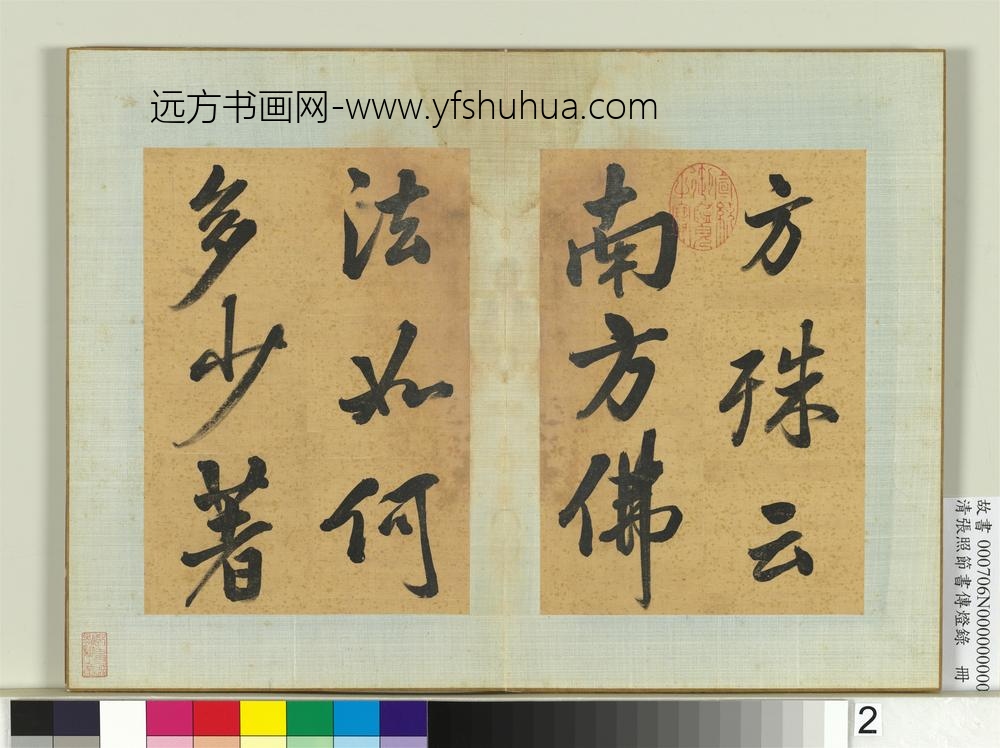 远方书画网-www.yfshuhua.com
方殊云
南方佛
法如何
多少著
故書 000706N000000000
清張照節書傳燈錄 冊
2